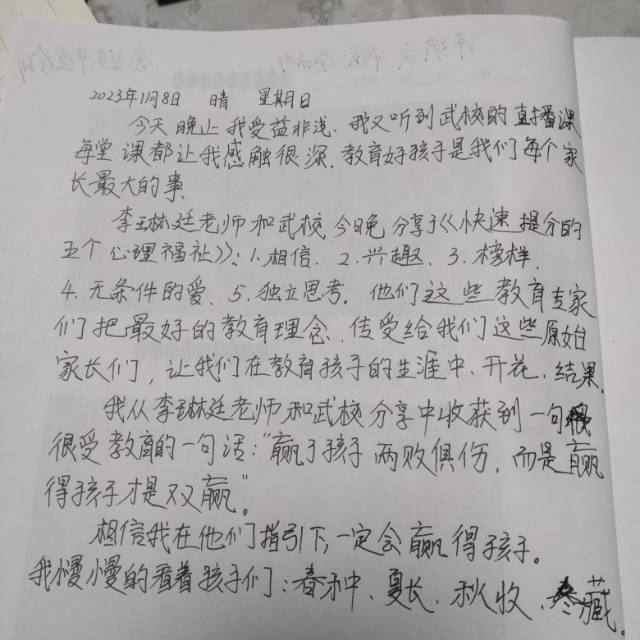 2023年1月8日 晴 星期日
今天晚上我受益非浅.我又听到武校的直播课
每堂课都让我感触很深.教育好孩子是我们每个家
长最大的事.
李琳廷老师和武校今晚分享了《快速提分的
五个心理福祉》:1.相信.2.兴趣.3.榜样.
4.无条件的爱.5.独立思考.他们这些教育专家
们把最好的教育理念.传受给我们这些原始
家长们,让我们在教育孩子的生涯中.开花.结果.
我从李琳廷老师和武校分享中收获到一句
很受教育的一句话:"赢了孩子两败俱伤,而是赢
得孩子才是双赢"。
相信我在他们指引下,一定会赢得孩子。
我慢慢的看着孩子们:春种、夏长、秋收、冬藏.